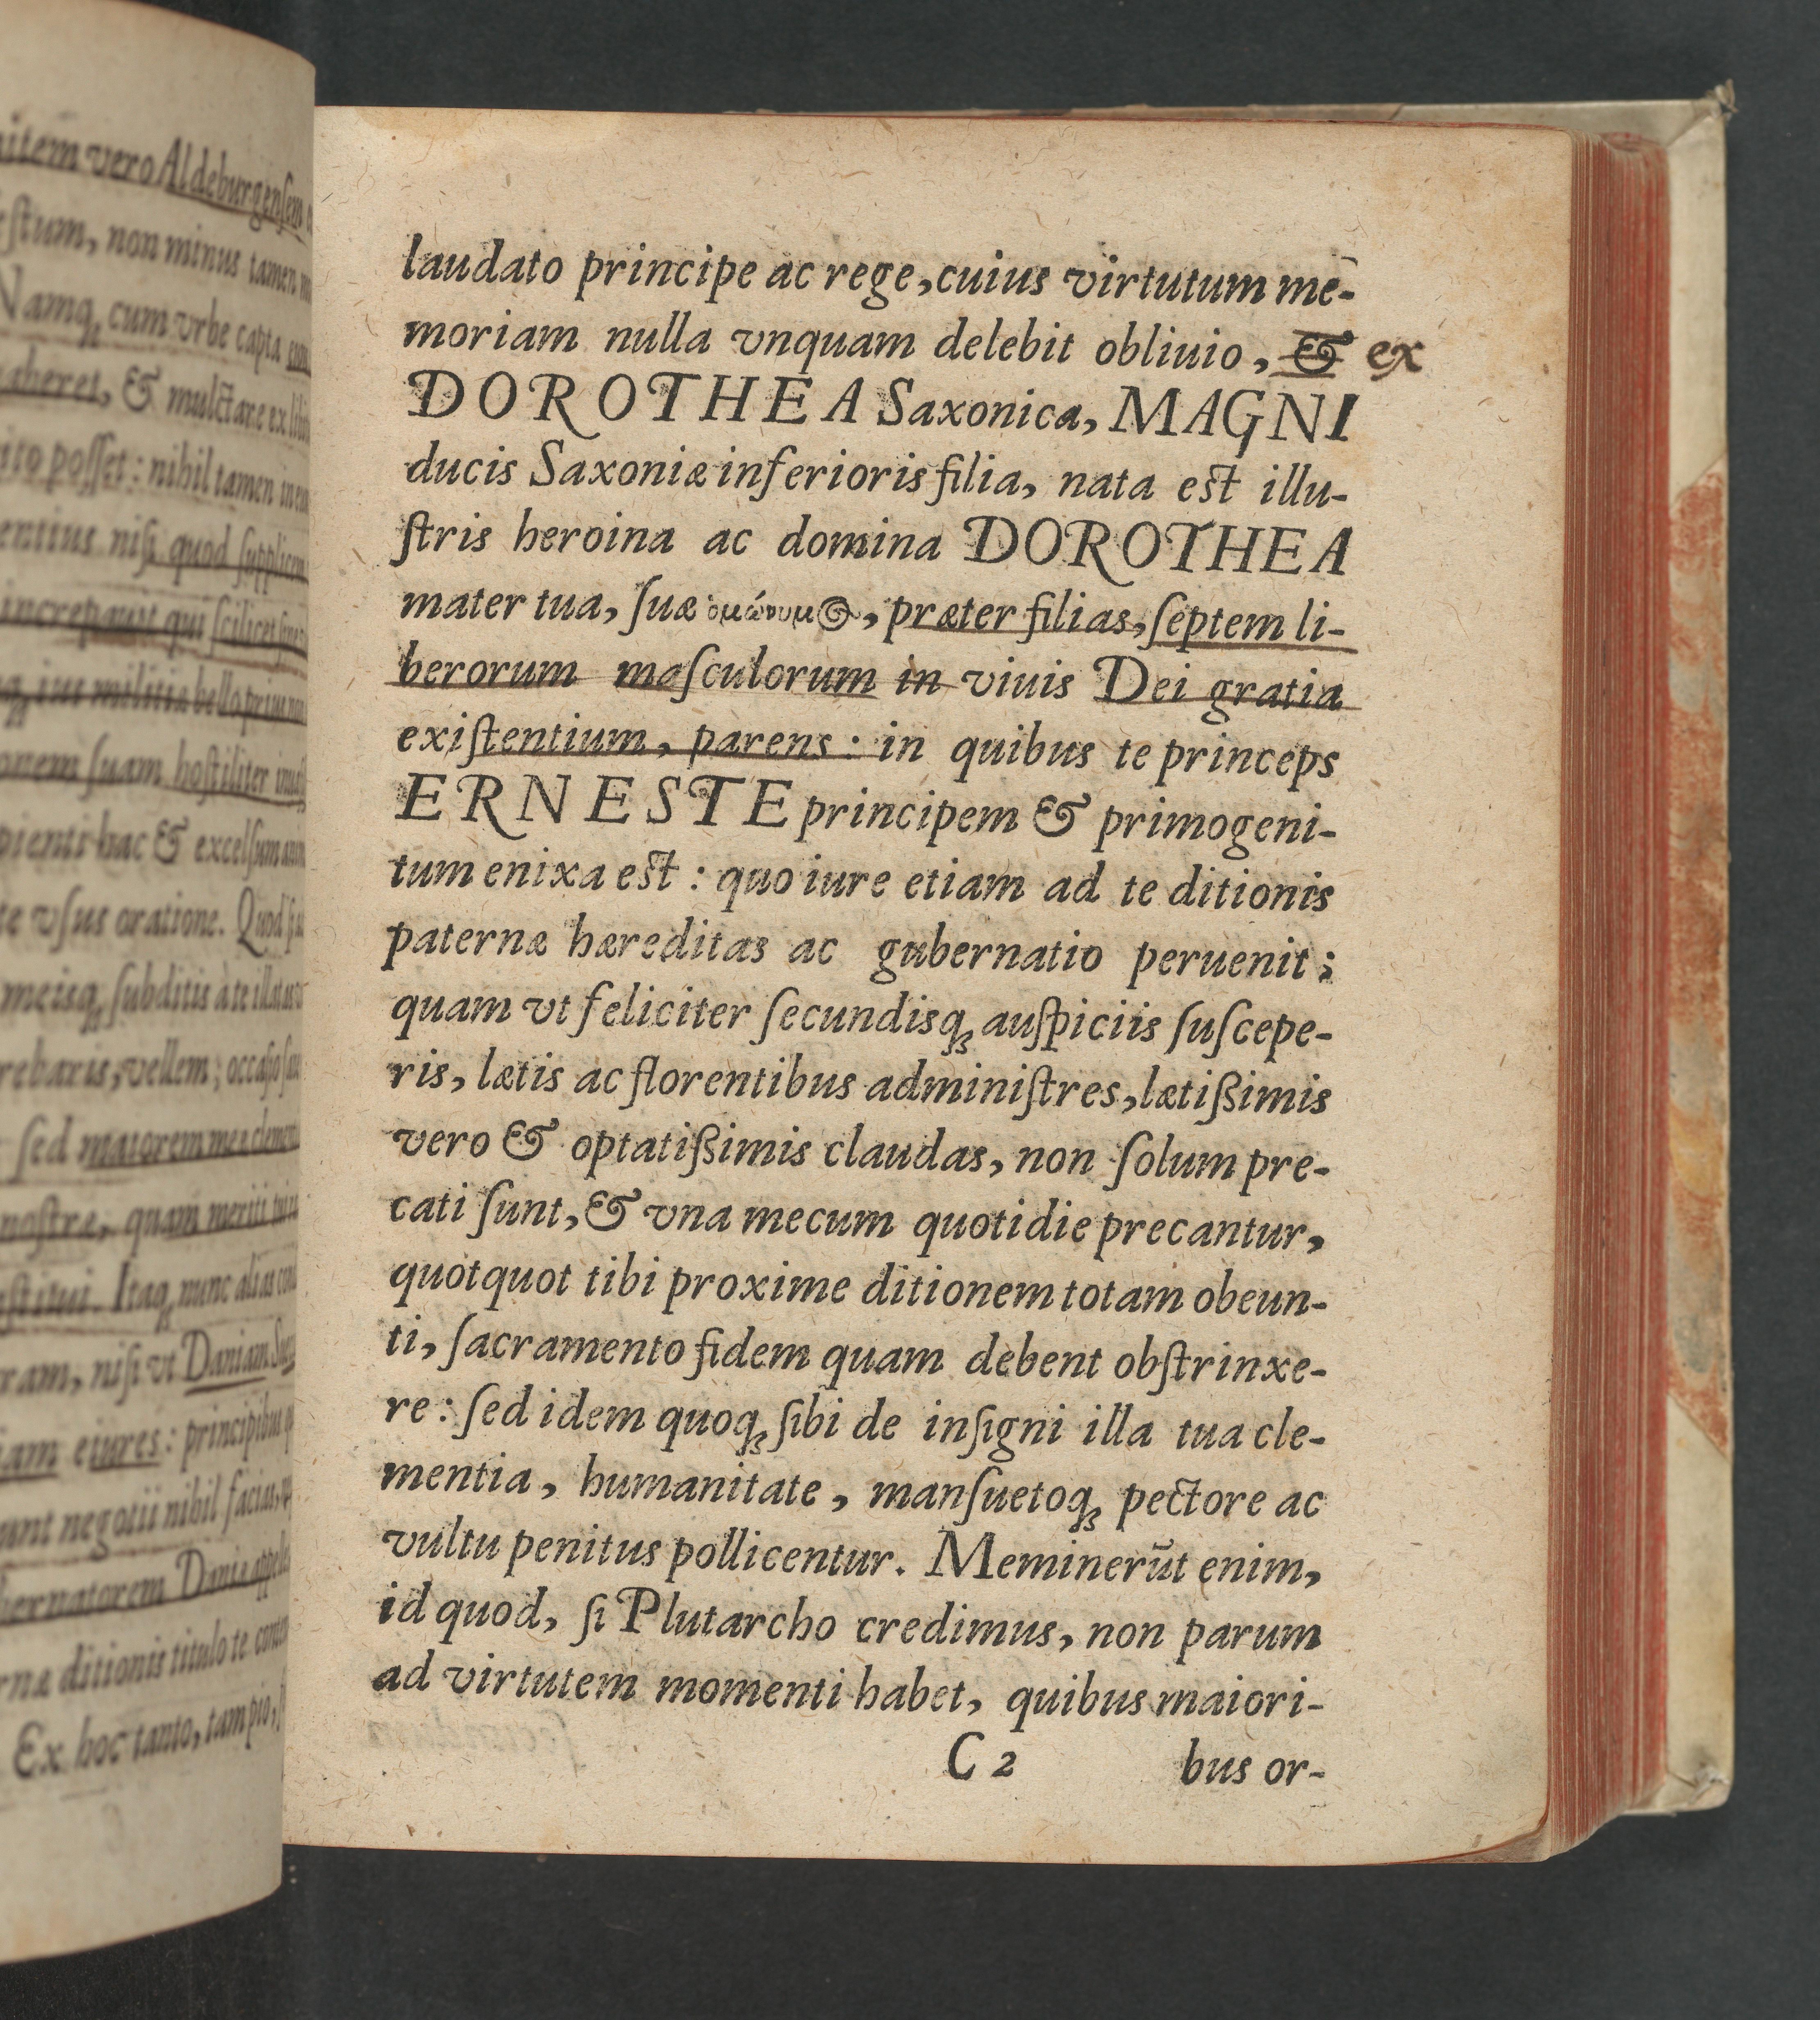 item vero Aldeburgensem
stum, non minus tamen
Namq́; cum vrbe capta
haberet, & mulctare ex libi
ito posset: nihil tamen
entius nisi quod supplicem
increpauit qui scilicet
ius militia bello
onem suam hostiliter
pienti hac & excelsum
te vsus oratione. Quod
meisq; subditis à te illatas
rebaris, vellem; occasio
sed maiorem meæ clemen
nostræ, quam meriti tui
stitui. Itaq; nunc alias
ram, nisi vt Daniam
iam eiures: principibus
ant negotii nihil facias,
bernatorem Daniæ appelles
rnæ ditionis titulo te
Ex hoc tanto, tam pio,
laudato principe ac rege, cuius virtutum mē-
moriam nulla vnquam delebit obliuio, & ex
DOROTHEA Saxonica, MAGNI
ducis Saxoniæ inferioris filia, nata est illu-
ſtris heroina ac domina DOROTHEA
mater tua, ſuæ ὁμώνυμος, præter filias, ſeptem li-
berorum maſculorum in viuis Dei gratia
exiſtentium, parens: in quibus te princeps
ERNESTE principem & primogeni-
tum enixa est: quo iure etiam ad te ditionis
paternæ hæreditas ac gubernatio peruenit;
quam vt feliciter ſecundisq; auſpiciis ſuſcepe-
ris, lætis ac florentibus adminiſtres, lætißimis
vero & optatißimis claudas, non ſolum pre-
cati ſunt, & vna mecum quotidie precantur,
quotquot tibi proxime ditionem totam obeun-
ti, ſacramento fidem quam debent obſtrinxe-
re: ſed idem quoq; ſibi de inſigni illa tua cle-
mentia, humanitate, manſuetoq; pectore ac
vultu penitus pollicentur. Meminerūt enim,
id quod, ſi Plutarcho credimus, non parum
ad virtutem momenti habet, quibus maiori-
C 2 bus or-